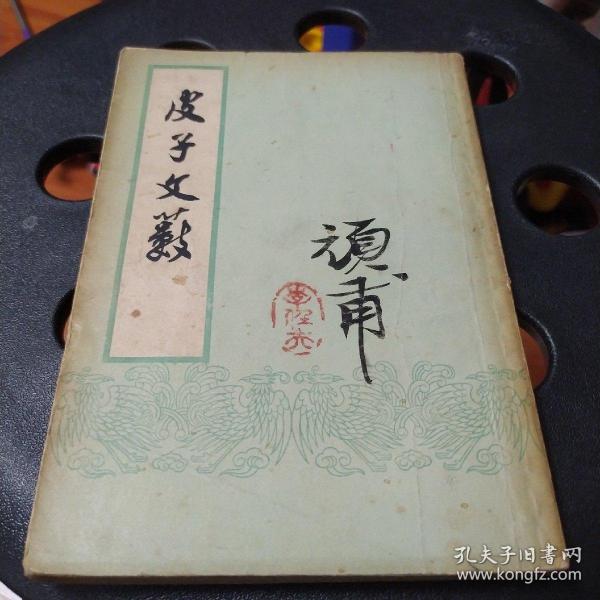 皮子文藪
頑甫
孔夫子旧书网
www.kongfz.com